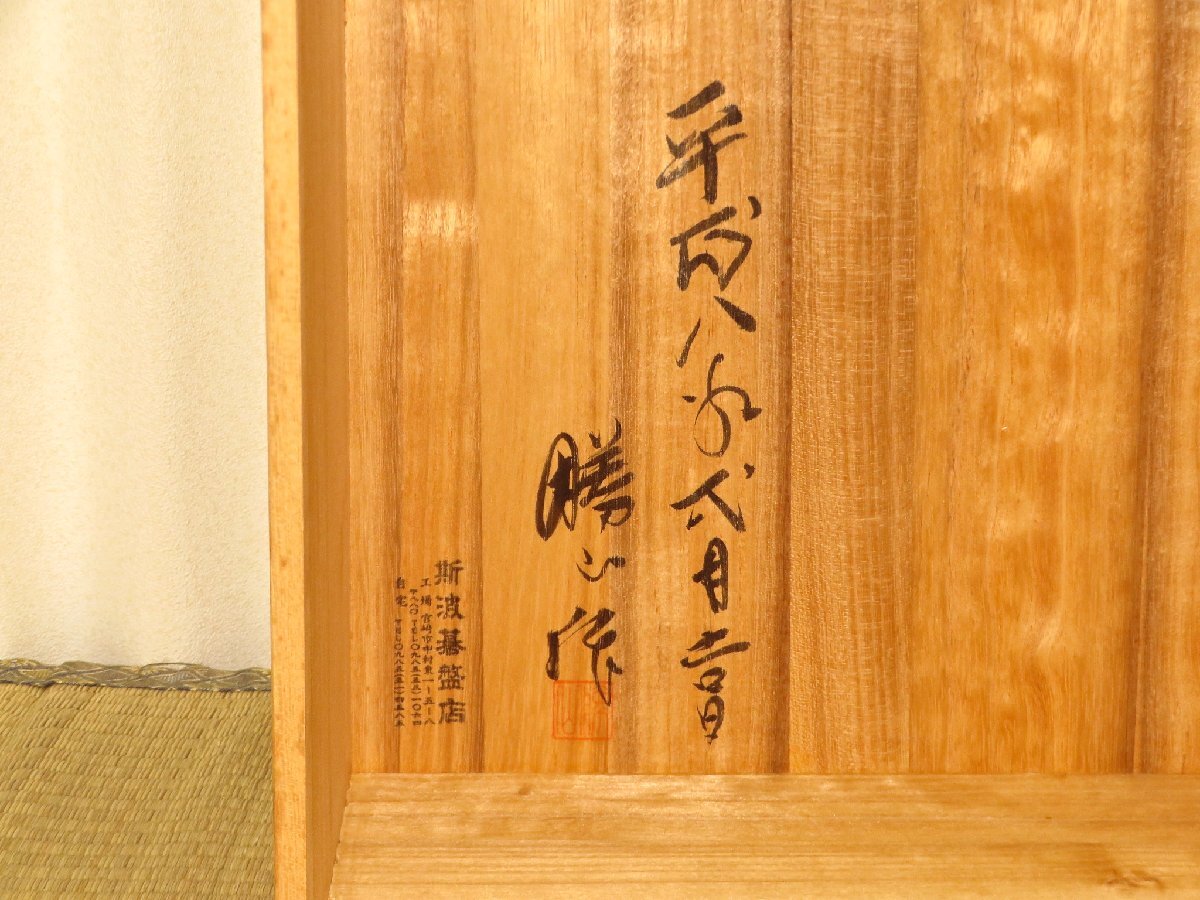 平成八年弐月吉日
勝山作
斯波碁盤店
工場 宮崎市中村東一ー五ー八
自宅